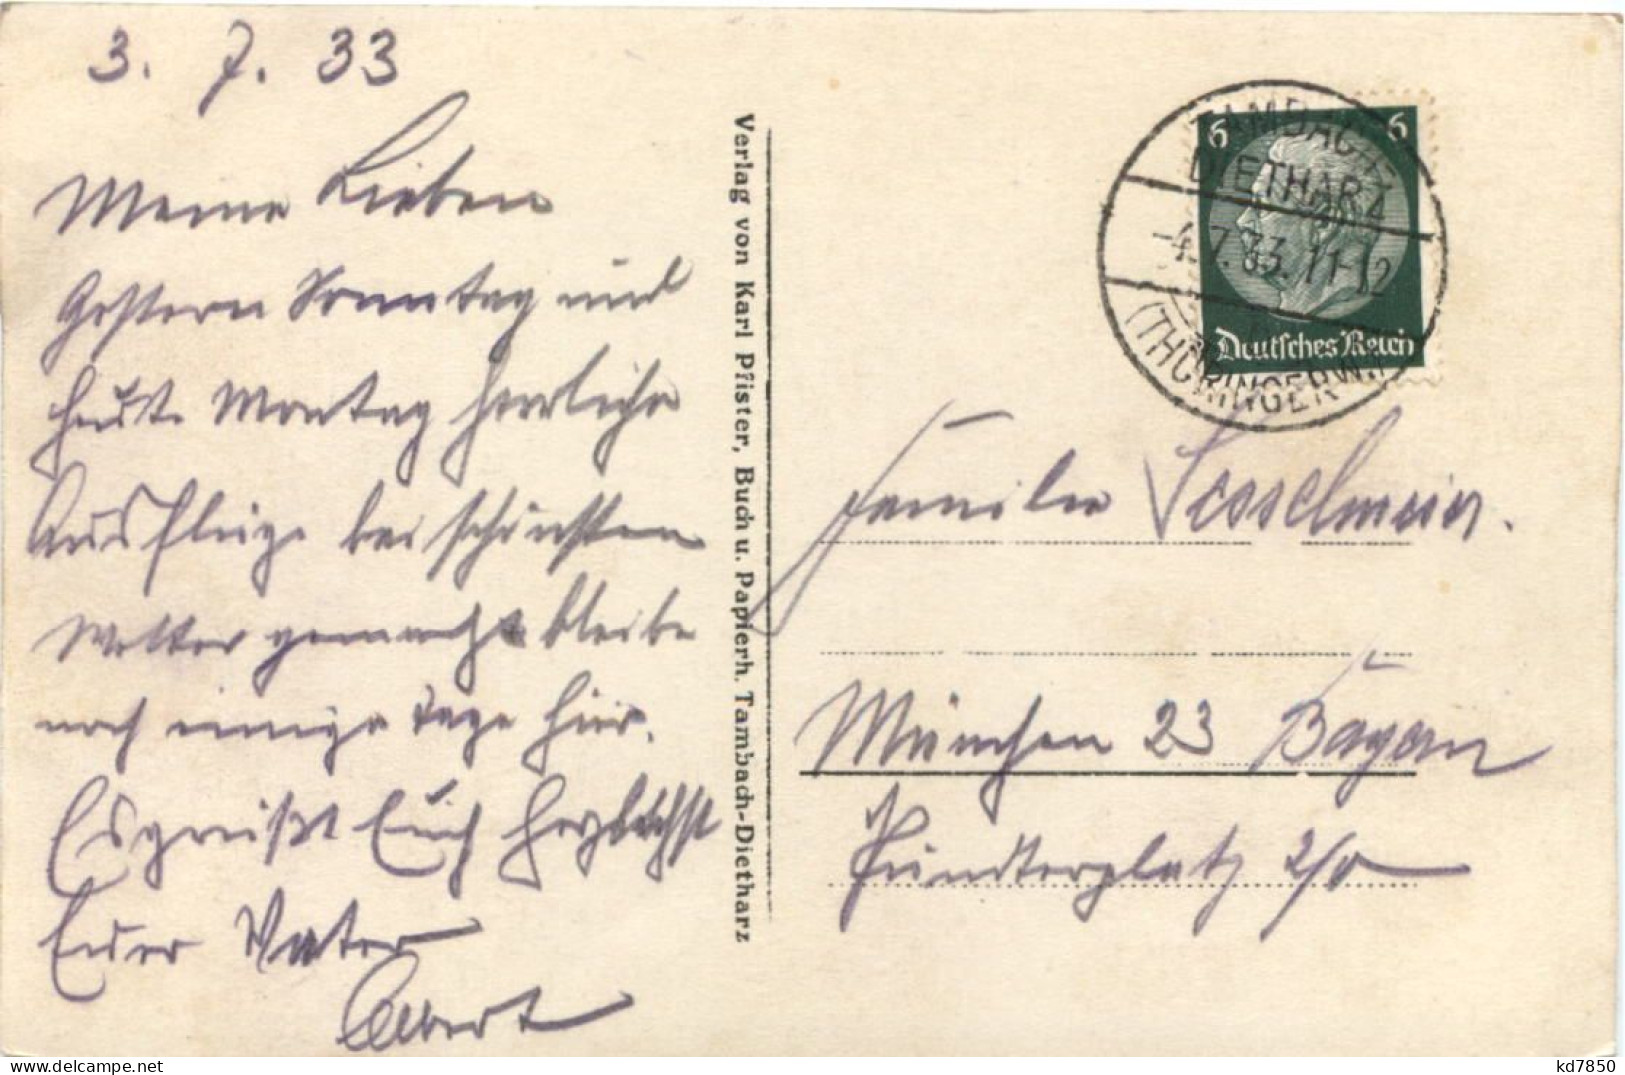 3. 7. 33
Meine Lieben
Gestern Sonntag und
heute Montag herrliche
Ausflüge bei schönsten
Wetter gemacht bleibe
noch einige Tage hier.
Es grüßt Euch herzlichst
Euer Vater
Albert
Verlag von Karl Pfister, Buch u. Papierh. Tambach-Dietharz
TAMBACH-
DIETHARZ
-4.7.33. 11-12
(THÜRINGERW.)
6 6
Deutsches Reich
Familie Sesselmeier.
München 23 Bayern
Fündterplatz 2/0
kd7850